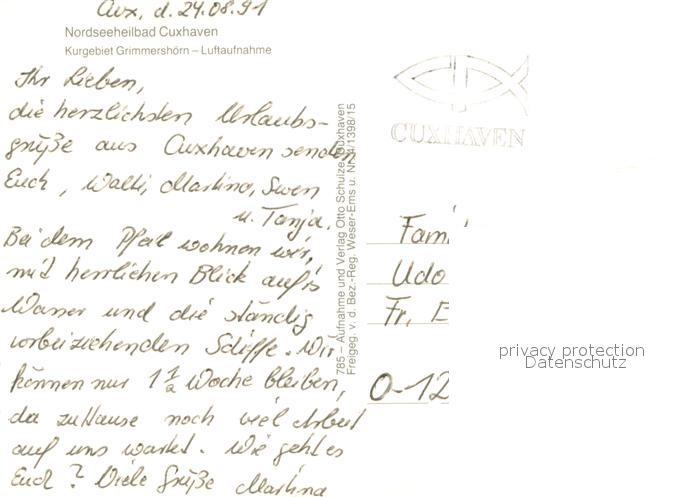 Cux, d. 24.08.91
Nordseeheilbad Cuxhaven
Kurgebiet Grimmershörn – Luftaufnahme
Ihr Lieben,
die herzlichsten Urlaubs-
grüße aus Cuxhaven senden
Euch, Walli, Martina, Swen
u. Tanja.
Bei dem Pfeil wohnen wir,
mit herrlichen Blick auf's
Wasser und die ständig
vorbeiziehenden Schiffe. Wir
können nur 1 1/2 Woche bleiben,
da zu Hause noch viel Arbeit
auf uns wartet. Wie geht es
Euch? Viele Grüße Martina
785 – Aufnahme und Verlag Otto Schulze, Cuxhaven
Freigeg. v. d. Bez.-Reg. Weser-Ems u. Nr. 1398/15
CUXHAVEN
Fami
Udo
Fr. E
O-12
privacy protection
Datenschutz